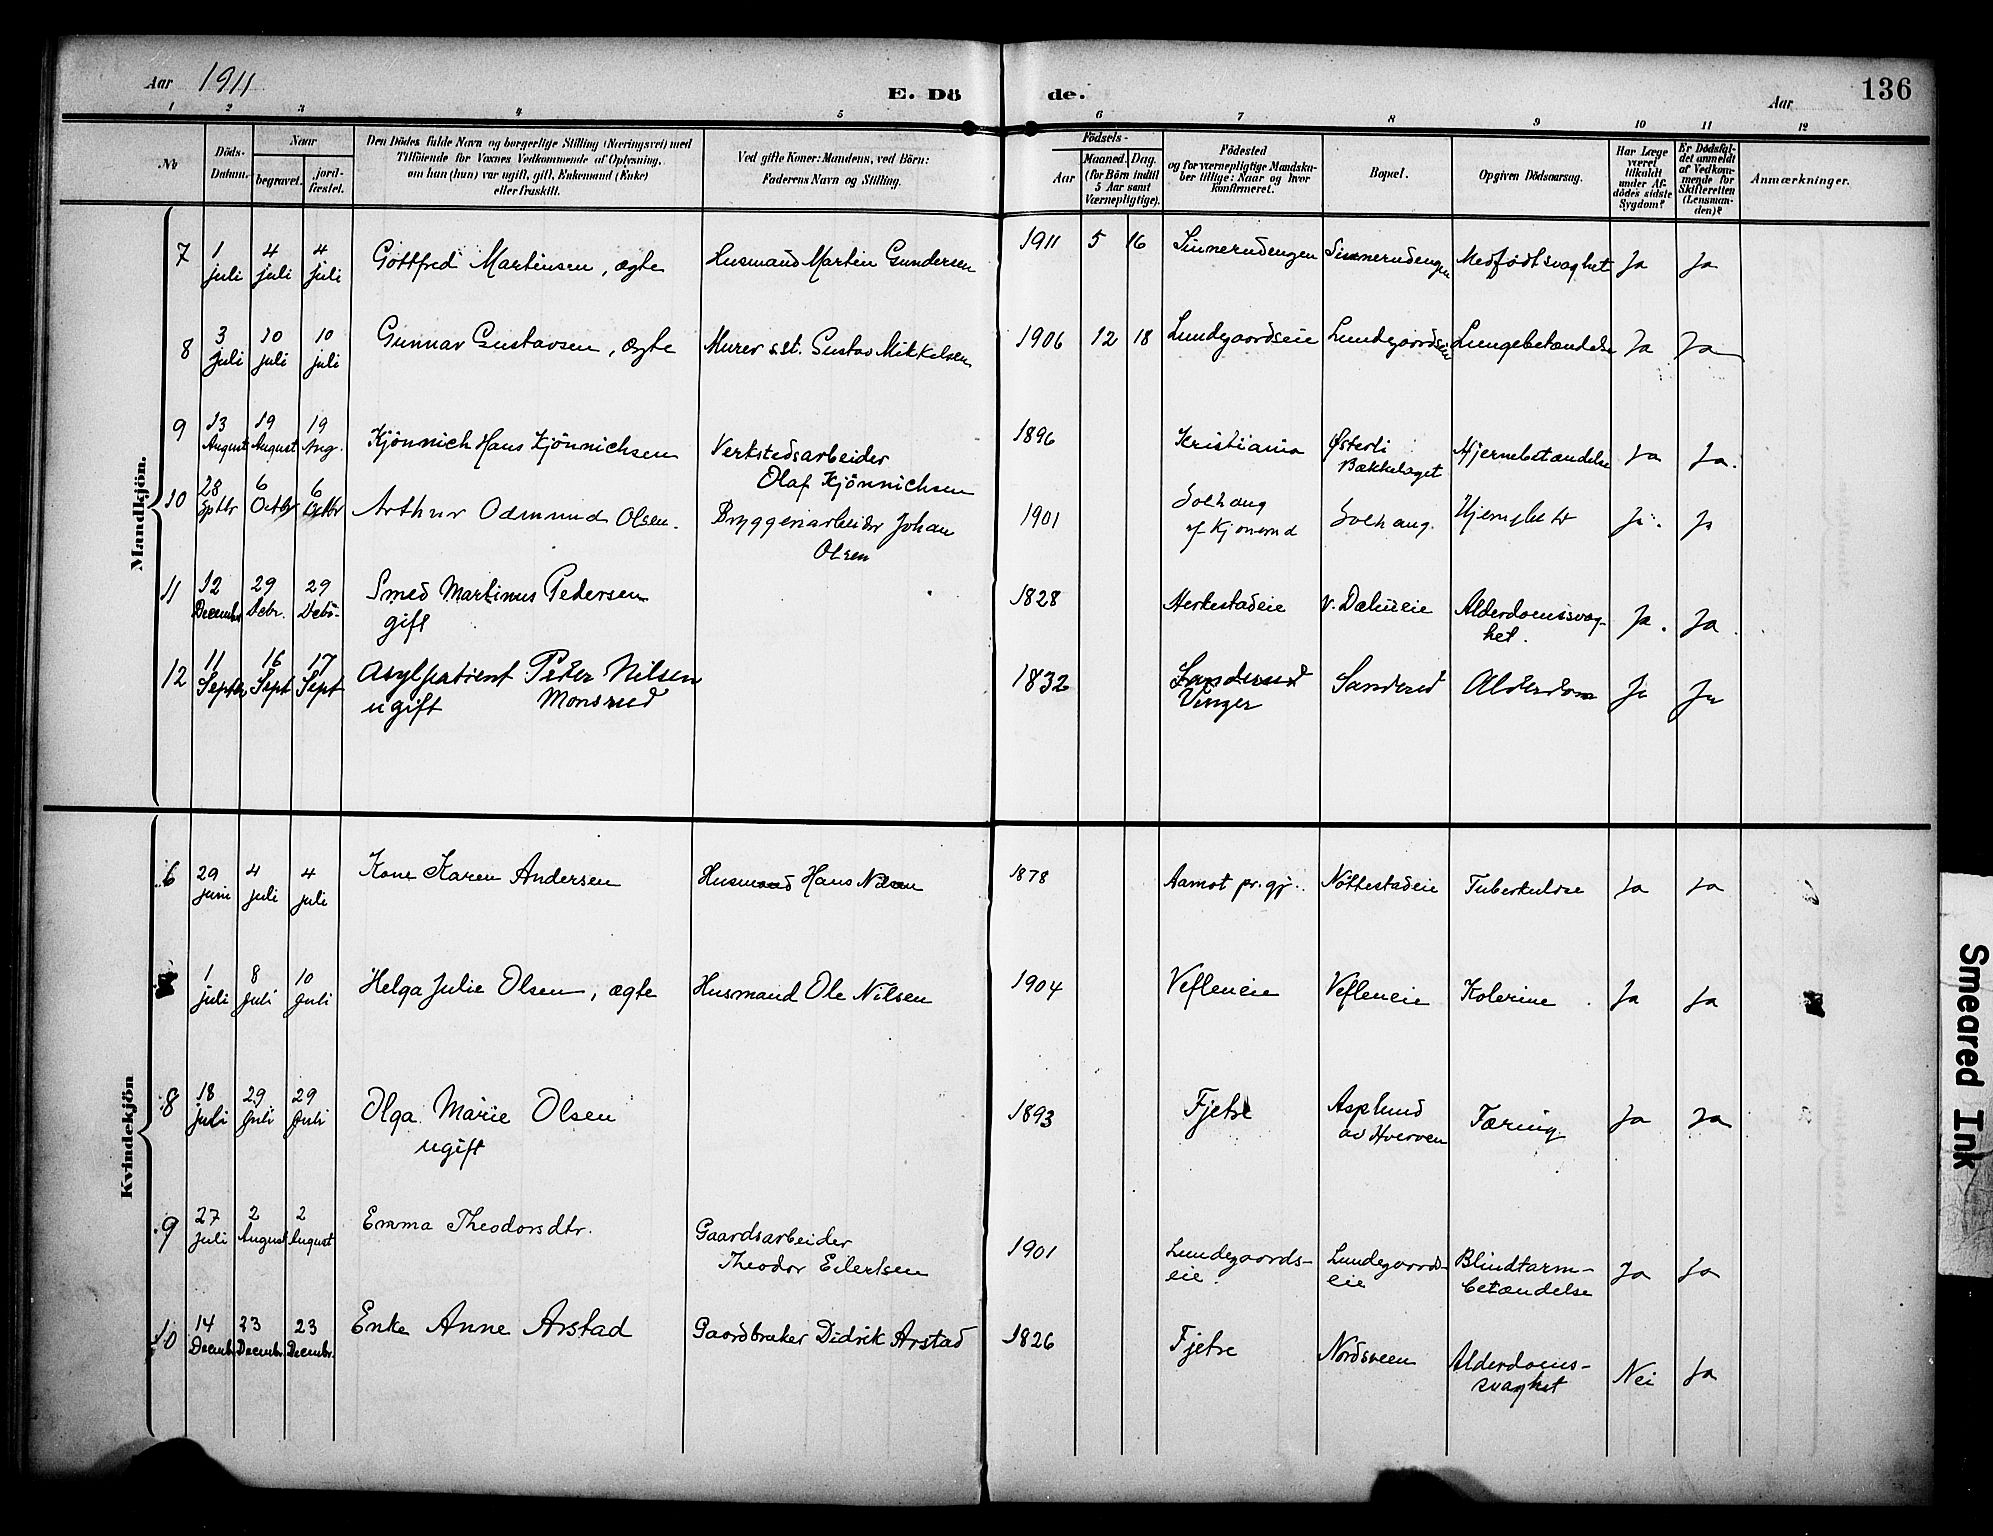 Aar 1911
E. Dö de.
136
Aar
1 2 3 4 5 6 7 8 9 10 11 12
No
Döds-
Datum.
Naar
begravet.
jord-
fæstet.
Den Dödes fulde Navn og borgerlige Stilling (Næringsvei) med
Tilföiende for Voxnes Vedkommende af Oplysning,
om han (hun) var ugift, gift, Enkemand (Enke)
eller fraskilt.
Ved gifte Koner: Mandens, ved Börn:
Faderens Navn og Stilling.
Födsels-
Aar
Maaned. Dag.
(for Börn indtil
5 Aar samt
Værnepligtige).
Födested
og for værnepligtige Mandska-
ber tillige: Naar og hvor
konfirmeret.
Bopæl.
Opgiven Dödsaarsag.
Har Læge
været
tilkaldt
under Af-
dödes sidste
Sygdom?
Er Dödsfal-
det anmeldt
af Vedkom-
mende for
Skifteretten
(Lensman-
den)?
Anmærkninger.
Mandkjön.
7 1 juli 4 juli 4 juli Gottfred Martinsen, ægte Husmand Martin Gundersen 1911 5 16 Sinnerudengen Sinnerudengen Medfødt svaghet Ja Ja
8 3 juli 10 juli 10 juli Gunnar Gustavsen, ægte Murer s.st. Gustav Mikkelsen 1906 12 18 Lundgaardseie Lundgaardseie Lungebetændelse Ja Ja
9 13 August 19 August 19 Aug. Kjönnich Hans Kjönnichsen Verkstedsarbeider
Olaf Kjönnichsen 1896 Kristiania Østerli
Bækkelaget Hjernebetændelse Ja Ja.
10 28 Sptbr 6 Octbr 6 Octbr Arthur Odmund Olsen. Bryggeriarbeider Johan
Olsen 1901 Solhaug
af Kjonerud Solhaug. Hjernebet Ja. Ja
11 12 Decembr 29 Debr. 29 Debr. Smed Martinus Pedersen
gift 1828 Herkestadeie v. Dælineie Alderdomssvag-
het. Ja. Ja.
12 11 Septbr 16 Sept 17 Sept Asylpatient Peder Nilsen
ugift Monsrud 1832 Sanderud
Vinger Sanderud Alderdom Ja Ja
Kvindekjön
6 29 juni 4 juli 4 juli Kone Karen Andersen Husmand Hans Nilsen 1878 Aamot pr.gj. Nöttestadeie Tuberkulose Ja Ja
1 juli 8 juli 10 juli Helga Julie Olsen, ægte Husmand Ole Nilsen 1904 Vefleneie Vefleneie Kolerine. Ja Ja
8 18 juli 29 juli 29 juli Olga Marie Olsen
ugift 1893 Fjetre Asplund
av Hverven Tæring Ja Ja
9 27 juli 2 August 2 August Emma Theodorsdtr. Gaardsarbeider
Theodor Eilertsen 1901 Lundegaards-
eie. Lundegaards-
eie Blindtarm-
betændelse Ja Ja
10 14 Decembr 23 Decembr 23 Decembr. Enke Anne Arstad Gaardbruker Didrik Arstad 1826 Fjetre Nordsveen Alderdoms-
svaghet Nei Ja
Smeared Ink